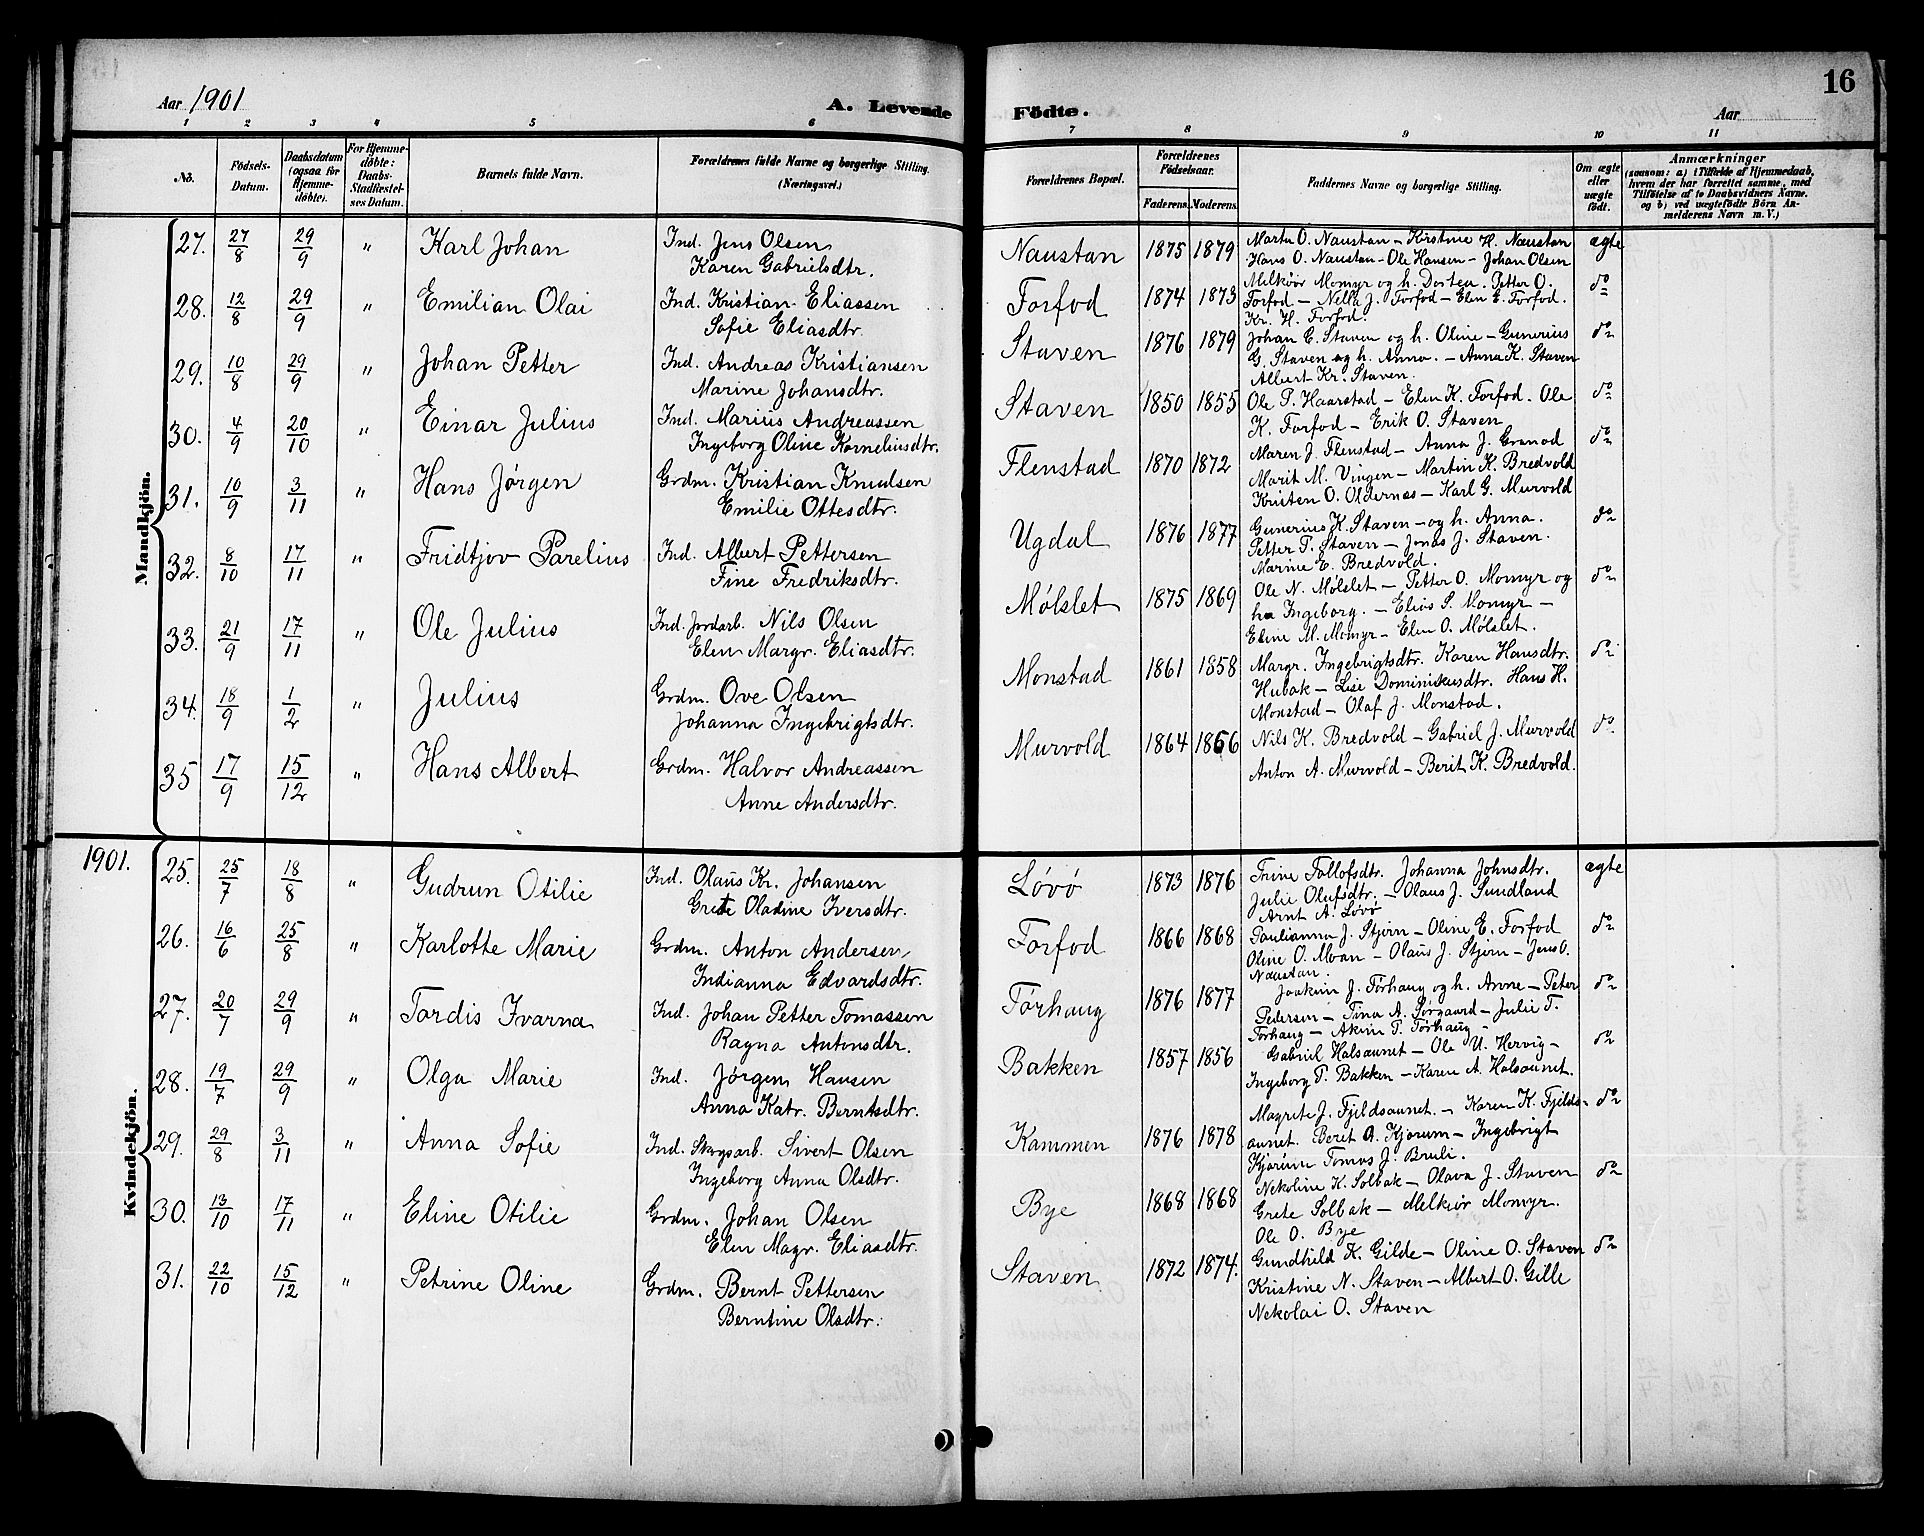 Aar 1901
A. Levende Födte.
Aar
16
1 2 3 4 5 6 7 8 9 10 11
No.
Födsels-Datum.
Daabsdatum (ogsaa for Hjemme-döbte).
For Hjemme-döbte: Daabs-Stadfæstel-ses Datum.
Barnets fulde Navn.
Forældrenes fulde Navne og borgerlige Stilling. (Næringsvei.)
Forældrenes Bopæl.
Forældrenes Födselsaar.
Faderens. Moderens.
Faddernes Navne og borgerlige Stilling.
Om ægte eller uægte født.
Anmærkninger
(saasom: a) i Tilfælde af Hjemmedaab, hvem der har forrettet samme, med Tilföielse af to Daabsvidners Navne. og b) ved uægtefödte Börn An-melderens Navn m. V.)
Mandkjön.
27. 27/8 29/9 " Karl Johan Ind. Jens Olsen
Karen Gabrielsdtr.
Naustan 1875 1879 Marta O. Naustan – Kirstine H. Naustan ægte
Hans O. Naustan – Ole Hansen – Johan Olsen
28. 12/8 29/9 " Emilian Olai Ind. Kristian Eliassen
Sofie Eliasdtr.
Forfod 1874 1873 Melkior Momyr og h. Dortea. Petter O. do
Forfod – Nella J. Forfod – Elen E. Forfod.
Kr. H. Forfod.
29. 10/8 29/9 " Johan Petter Ind. Andreas Kristiansen
Marine Johansdtr.
Staven 1876 1879 Johan E. Staven og h. Oline – Gunerius do
G. Staven og h. Anna. – Anna K. Staven
Albert Kr. Staven.
30. 4/9 20/10 " Einar Julius Ind. Marius Andreassen
Ingeborg Oline Korneliusdtr.
Staven 1850 1855 Ole P. Haarstad – Elen K. Forfod. Ole do
K. Forfod – Erik O. Staven
31. 10/9 3/11 " Hans Jørgen Grdm. Kristian Knudsen
Emilie Ottesdtr.
Flenstad 1870 1872 Maren J. Flenstad – Anna J. Granod do
Marit M. Vingen – Martin K. Bredvold
Kristen O. Oldernes – Karl G. Murvold
32. 8/10 17/11 " Fridtjov Parelius Ind. Albert Pettersen
Fine Fredriksdtr.
Ugdal 1876 1877 Gunerius K. Staven – og h. Anna. do
Petter P. Staven – Jonas J. Staven.
Marine E. Bredvold.
33. 21/9 17/11 " Ole Julius Ind. Jordarb. Nils Olsen
Elen Margr. Eliasdtr.
Mølslet 1875 1869 Ole N. Mølslet – Petter O. Momyr og do
ha Ingeborg. – Elias S. Momyr –
Eline M. Momyr – Elen O. Mølslet.
34. 18/9 1/2 " Julius Grdm. Ove Olsen
Johanna Ingebrigtsdtr.
Monstad 1861 1858 Margr. Ingebrigtsdtr. Karen Hansdtr. do
Hubak – Lise Dominikusdtr. Hans H.
Monstad – Olaf J. Monstad.
35 17/9 15/12 " Hans Albert Grdm. Halvor Andreassen
Anne Andersdtr.
Murvold 1864 1866 Nils K. Bredvold – Gabriel J. Murvold do
Anton A. Murvold – Berit K. Bredvold.
1901.
Kvindekjön.
25. 25/7 18/8 " Gudrun Otilie Ind. Olaus Kr. Johansen
Grete Oladine Iversdtr.
Løvø 1873 1876 Trine Tollofsdtr. Johanna Johnsdtr. ægte
Julie Olufsdtr. – Olaus J. Sundland
Arnt A. Løvø
26. 16/6 25/8 " Karlotte Marie Grdm. Anton Andersen
Indianna Edvardsdtr.
Forfod 1866 1868 Paulianna J. Stjern – Oline E. Forfod do
Oline O. Moan – Olaus J. Stjern – Jens O.
Naustan.
27. 20/7 29/9 " Tordis Ivarna Ind. Johan Petter Tomassen
Ragna Antonsdtr.
Tørhaug 1876 1877 Joakim J. Tørhaug og h. Anne – Peter do
Pedersen – Tina A. Sørgaard – Julie T.
Tørhaug – Akim T. Tørhaug –
28. 19/7 29/9 " Olga Marie Ind. Jørgen Hansen
Anna Katr. Berntsdtr.
Bakken 1857 1856 Gabriel Halsaunet – Ole U. Hervig – do
Ingeborg P. Bakken – Karen A. Halsaunet.
29. 29/8 3/11 " Anna Sofie Ind. Skogsarb. Sivert Olsen
Ingeborg Anna Olsdtr.
Kammen 1876 1878 Magrete J. Fjeldsaunet. – Karen K. Fjelds- do
aunet. Beret A. Kjørum – Ingebrigt
Kjørum Tomas J. Bruli.
30. 13/10 17/11 " Eline Otilie Grdm. Johan Olsen
Elen Magr. Eliasdtr.
Bye 1868 1868 Nekoline K. Solbak – Olava J. Staven do
Grete Solbak – Melkior Momyr.
Ole O. Bye
31. 22/10 15/12 " Petrine Oline Grdm. Bernt Pettersen
Berntine Olsdtr.
Staven 1872 1874. Gundhild K. Gilde – Oline O. Staven do
Kristine N. Staven – Albert O. Gille
Nekolai O. Staven